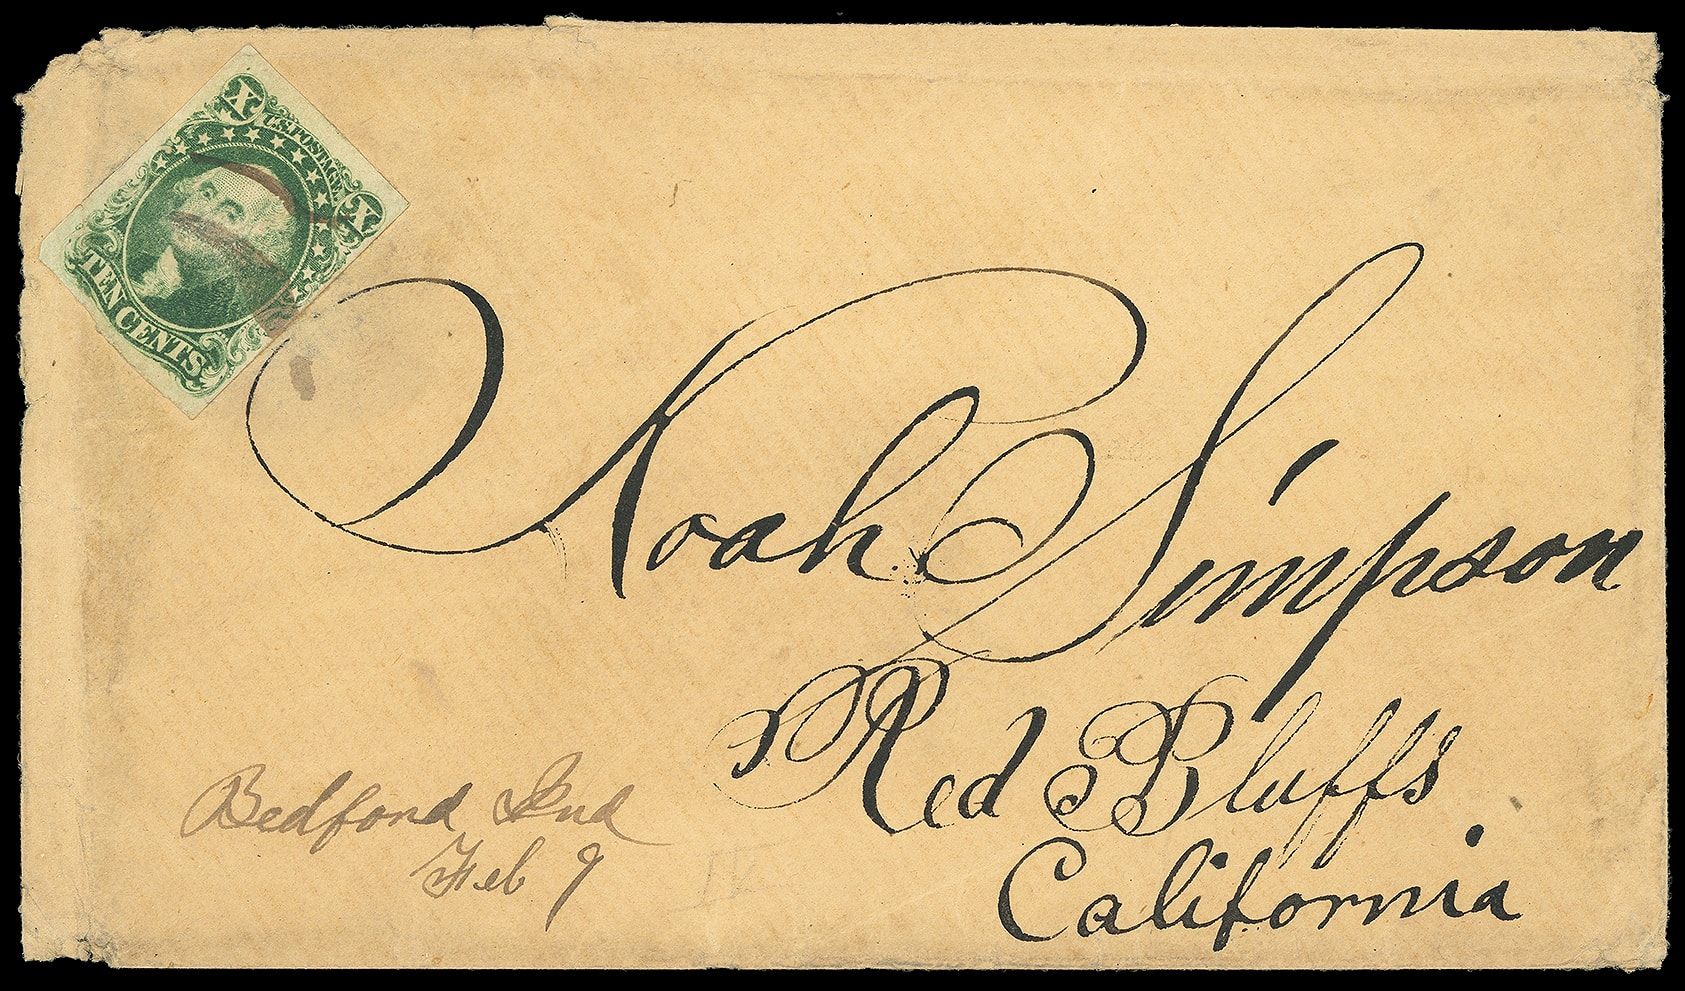 X U.S. POSTAGE X
TEN CENTS
Noah Simpson
Red Bluffs
California
Bedford Ind
Feb 9